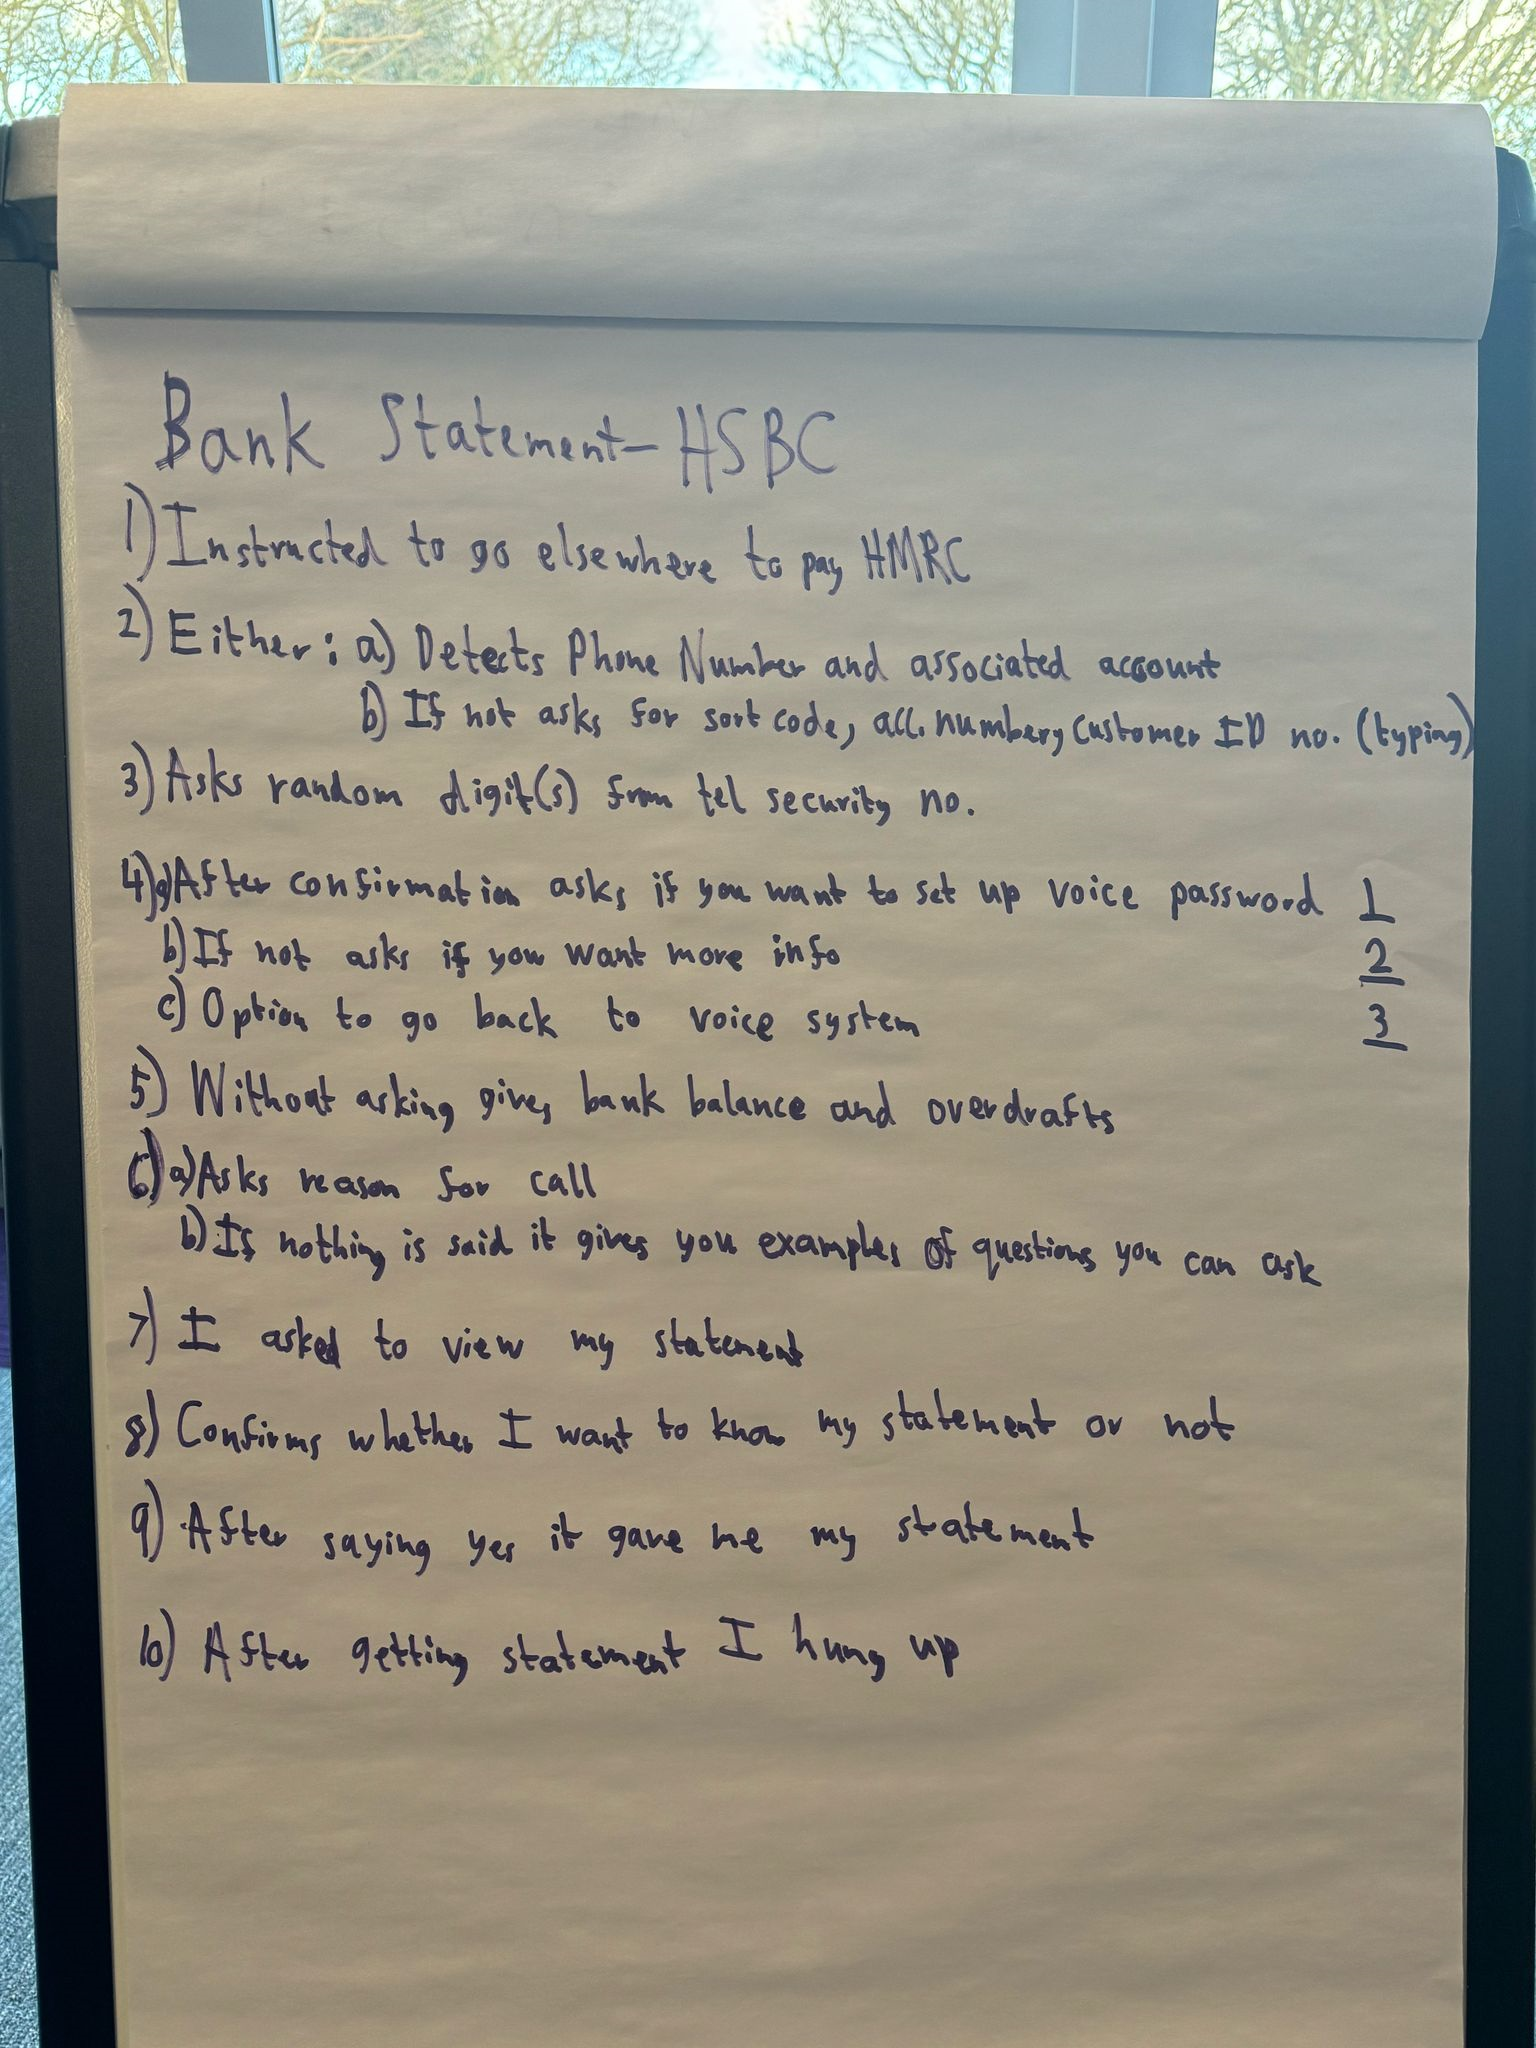 Bank Statement - HSBC
1) Instructed to go elsewhere to pay HMRC
2) Either: a) Detects Phone Number and associated account
b) If not asks for sort code, acc. number, Customer ID no. (typing)
3) Asks random digit(s) from tel security no.
4) a) After confirmation asks if you want to set up voice password 1
b) If not asks if you want more info 2
c) Option to go back to voice system 3
5) Without asking gives bank balance and overdrafts
6) a) Asks reason for call
b) If nothing is said it gives you examples of questions you can ask
7) I asked to view my statement
8) Confirms whether I want to know my statement or not
9) After saying yes it gave me my statement
10) After getting statement I hung up